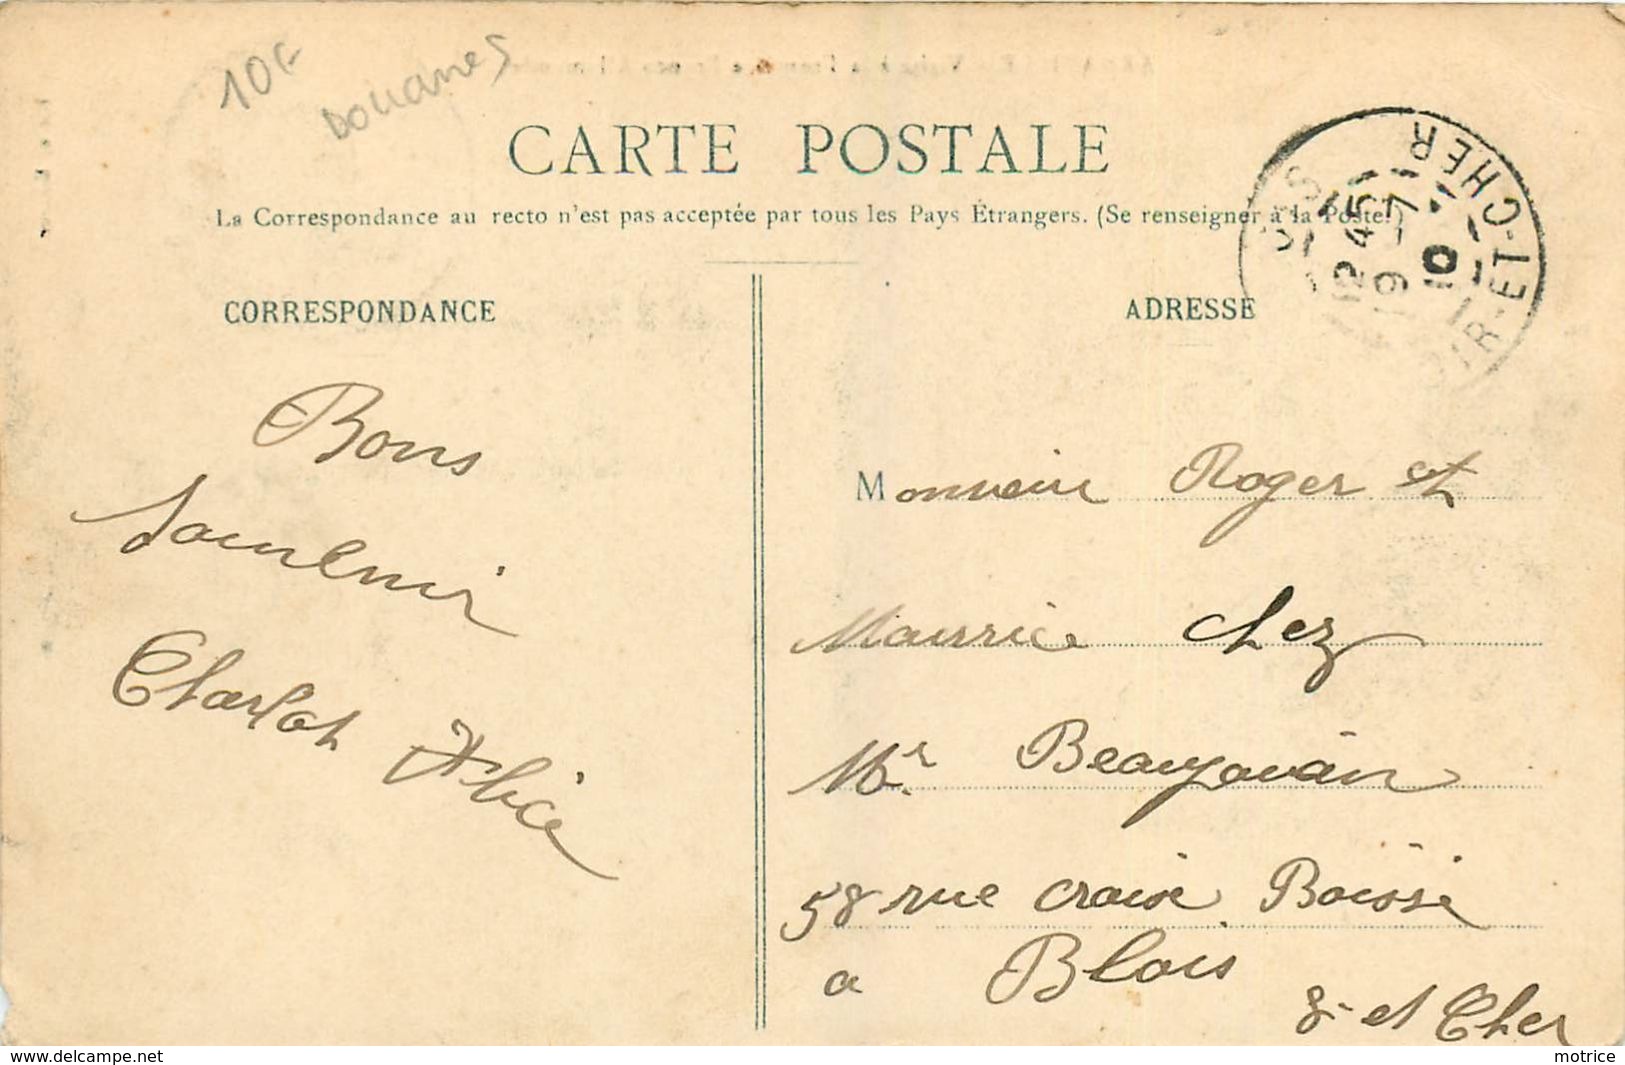 10€
Douanes
CARTE POSTALE
La Correspondance au recto n'est pas acceptée par tous les Pays Étrangers. (Se renseigner à la Poste.)
12 45
19 - 7
10
IR-ET-CHER
CORRESPONDANCE
Bons
Souvenir
Charlot Alice
ADRESSE
Monsieur Roger et
Maurice chez
Mr Beaujouan
58 rue croix Boissé
a Blois
&- et Cher
www.delcampe.net
motrice